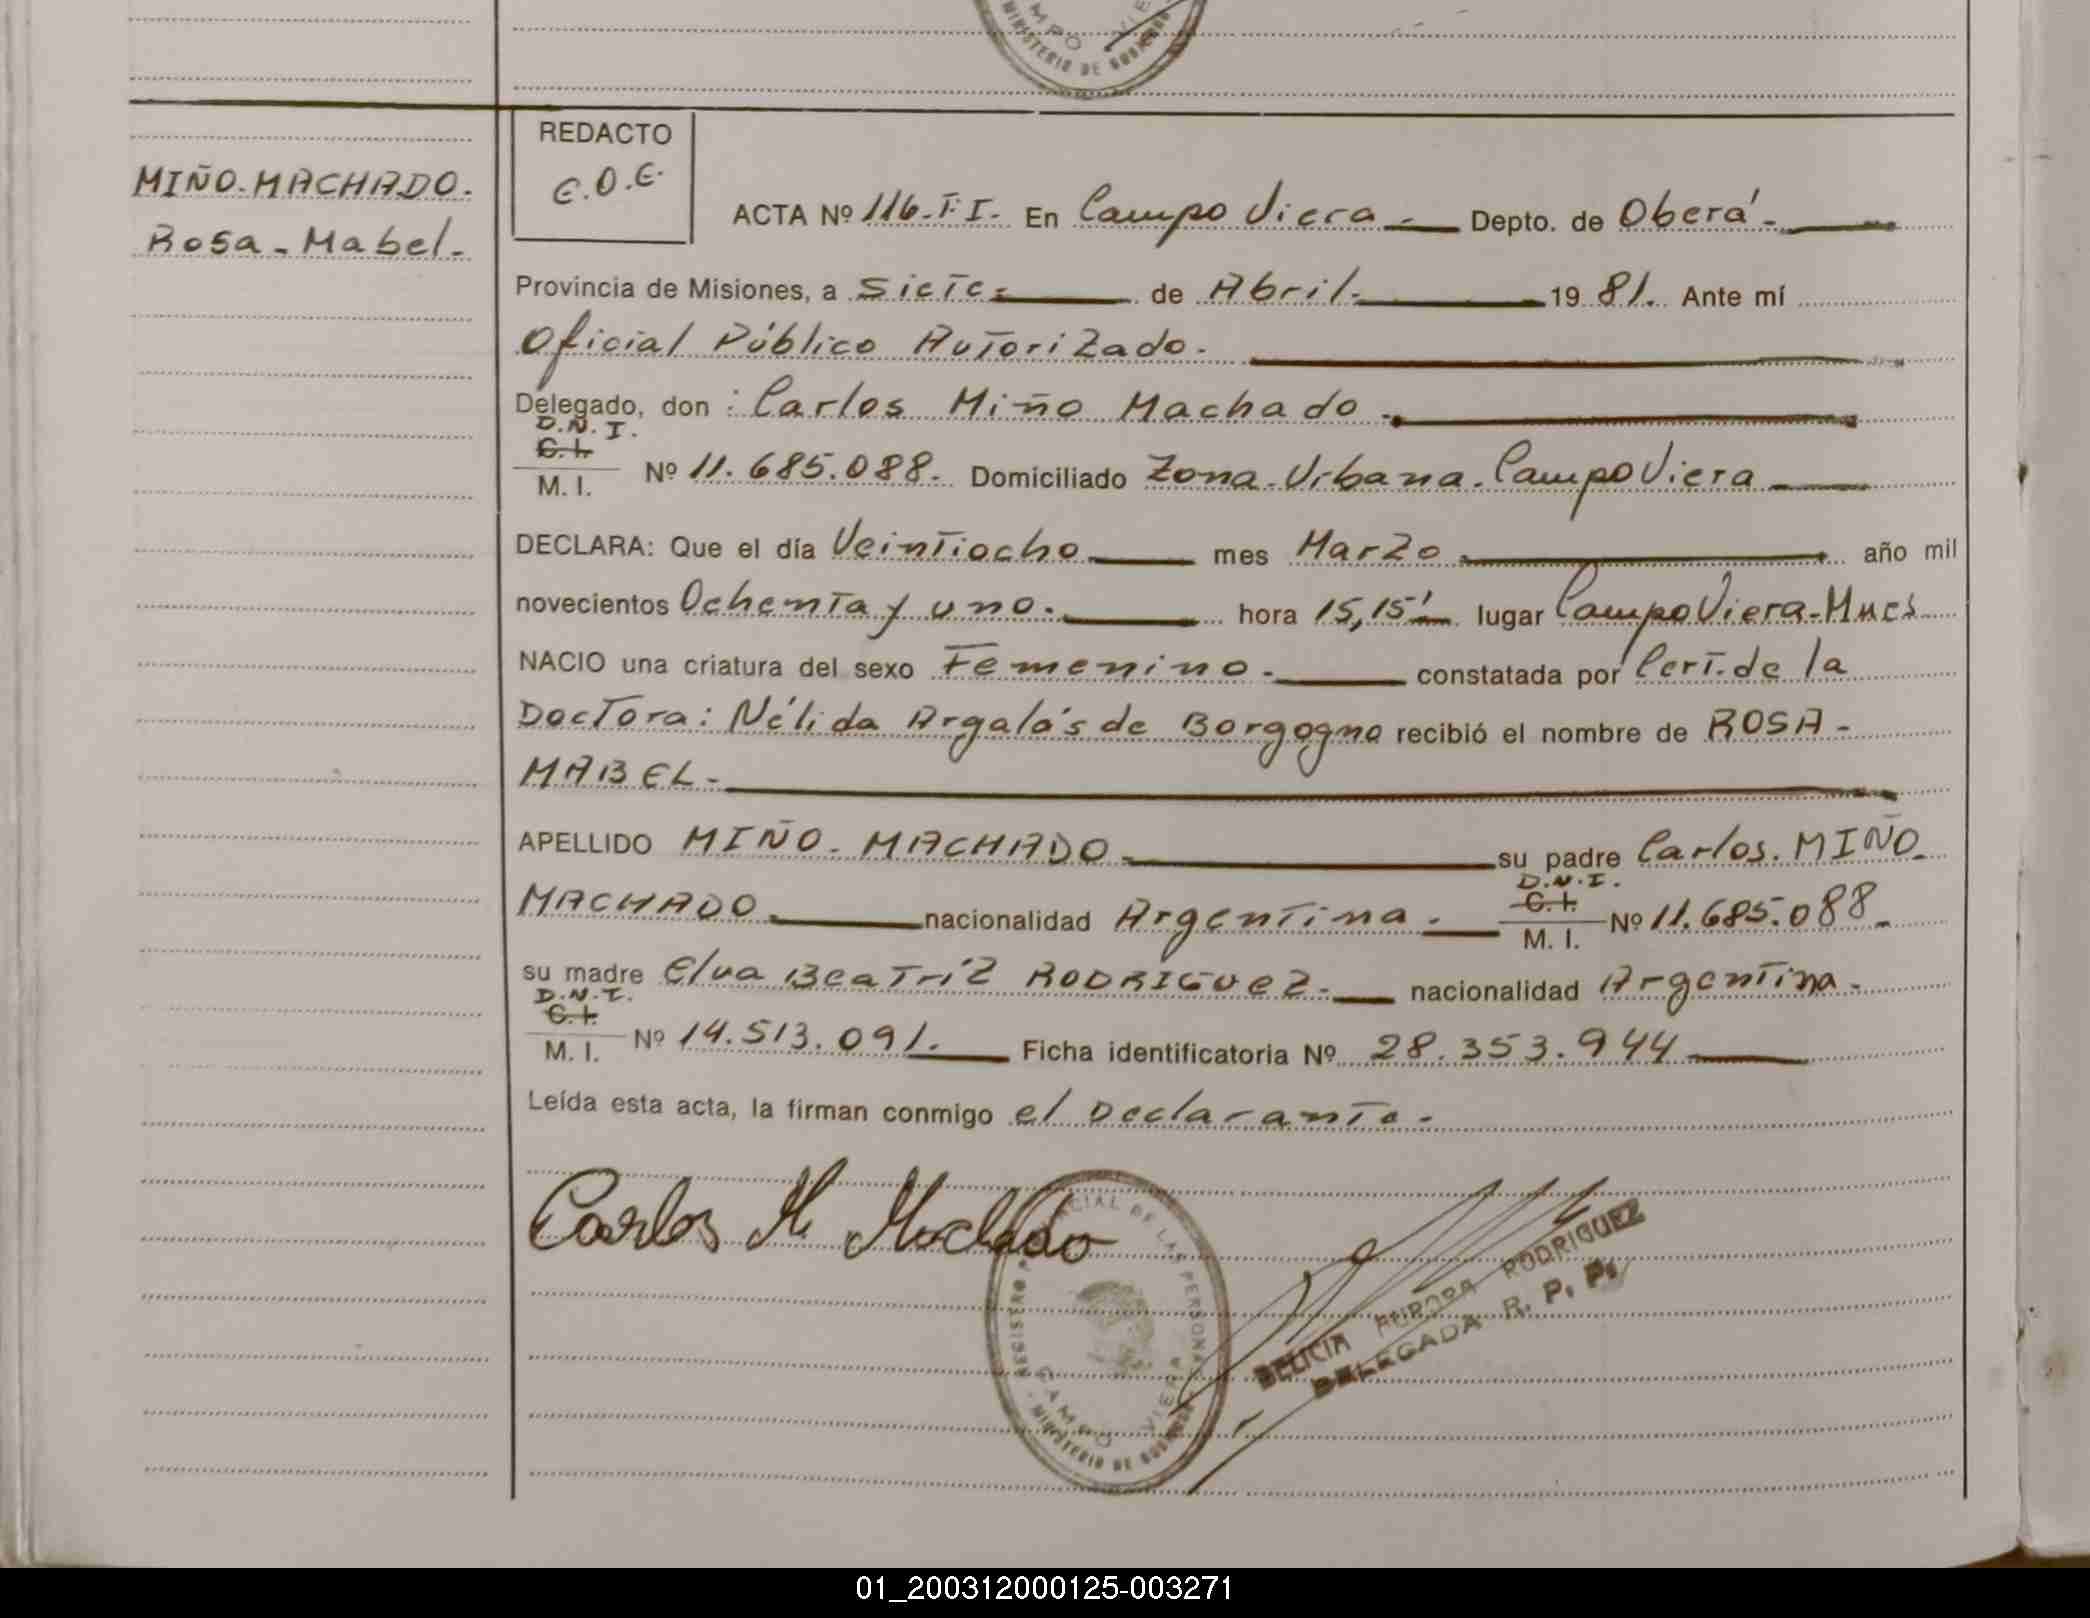 MPO VIE
MINISTERIO DE GOBIERNO
REDACTO
E.O.E.
MIÑO-MACHADO.
Rosa-Mabel.
ACTA Nº 116-T·I. En Campo Viera Depto. de Oberá
Provincia de Misiones, a Siete de Abril 19 81. Ante mí
Oficial Público Autorizado.
Delegado, don: Carlos Miño Machado.
D.N.I.
C.I.
M. I. Nº 11.685.088. Domiciliado Zona-Urbana-Campo Viera
DECLARA: Que el día Veintiocho mes Marzo año mil
novecientos Ochenta y uno. hora 15,15' lugar Campo Viera-Mnes
NACIO una criatura del sexo Femenino. constatada por Cert. de la
Doctora: Nélida Argalás de Borgogno recibió el nombre de ROSA-
MABEL-
APELLIDO MIÑO-MACHADO su padre Carlos. MIÑO
D.N.I.
C.I.
MACHADO nacionalidad Argentina. M. I. Nº 11.685.088.
su madre Elva Beatríz RODRIGUEZ. nacionalidad Argentina.
D.N.I.
C.I.
M. I. Nº 14.513.091. Ficha identificatoria Nº 28.353.944
Leída esta acta, la firman conmigo el Declarante.
Carlos M. Machado
REGISTRO PROVINCIAL DE LAS PERSONAS
CAMPO VIERA
MINISTERIO DE GOBIERNO
DELICIA AURORA RODRIGUEZ
DELEGADA R. P. P.
01_200312000125-003271